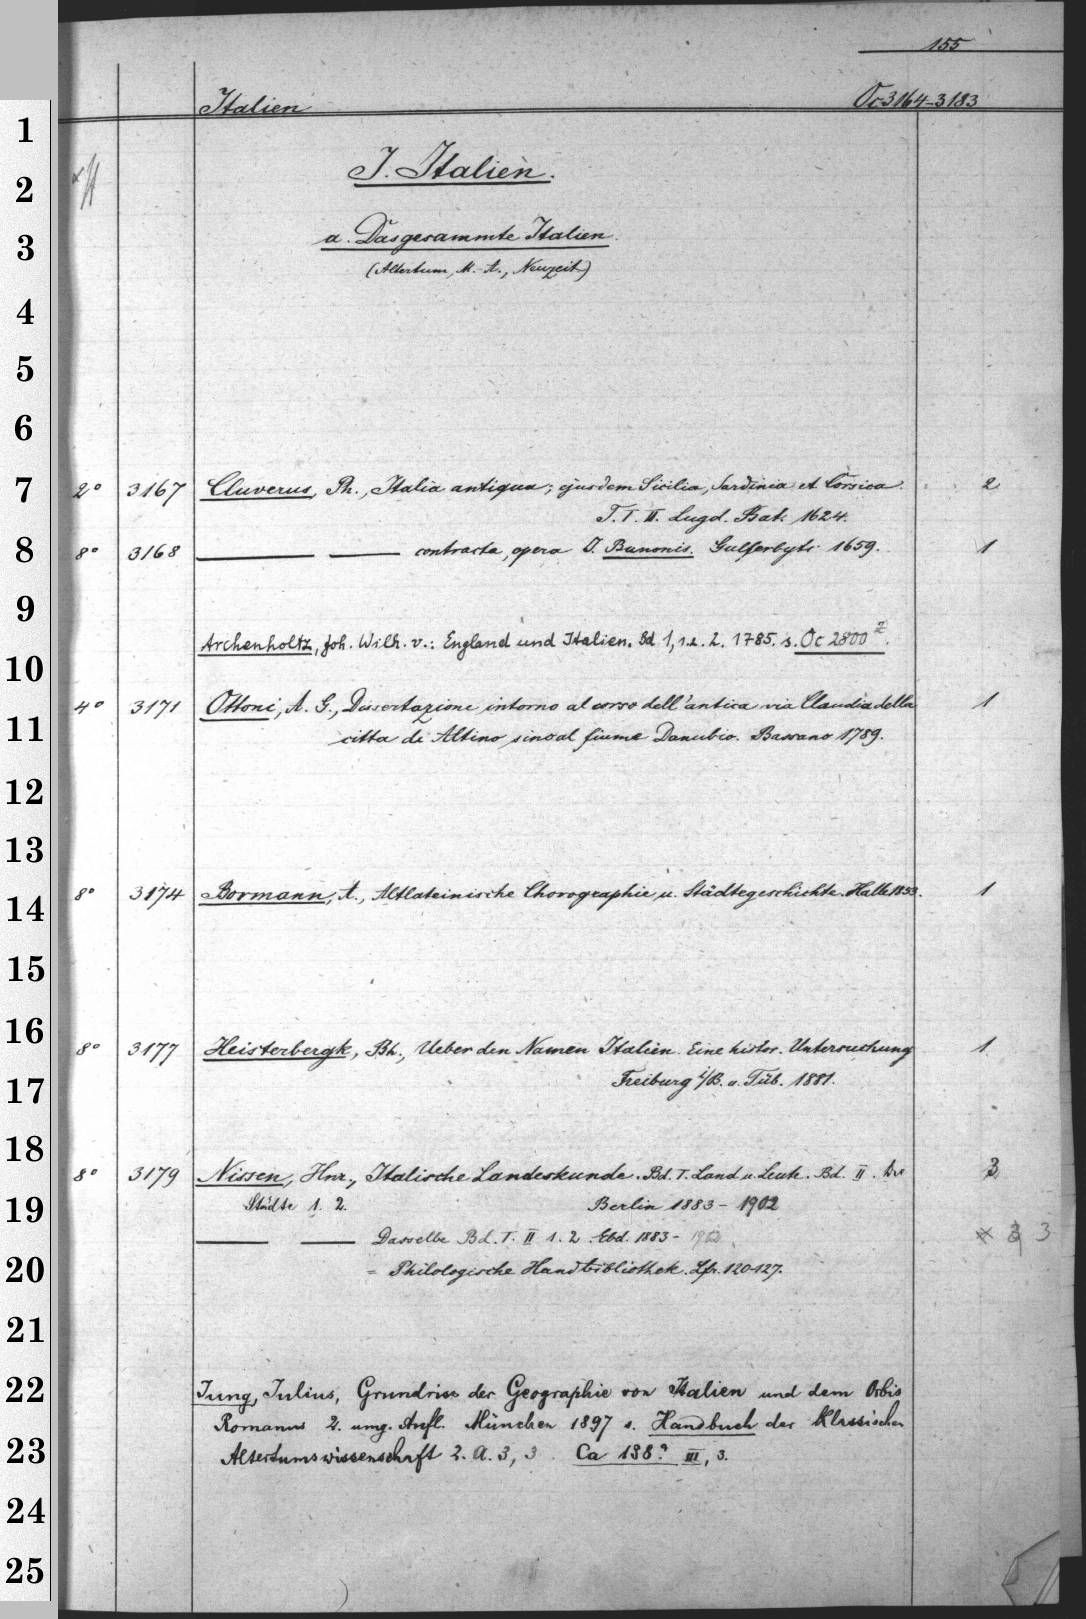 155
Italien Oc 3164-3183
1
J. Italien.
2
a. Das gesammte Italien.
3
(Altertum, M.-A., Neuzeit)
4
5
6
7 2° 3167 Cluverus, Ph., Italia antiqua; ejusdem Sicilia, Sardinia et Corsica. 2
T. I. II. Lugd. Bat. 1624.
8 8° 3168 contracta, opera J. Bunonis. Gulferbyti 1659. 1
9
Archenholtz, Joh. Wilh. v.: England und Italien. Bd. 1, 1.2. 2. 1785. s. Oc 2800
10
4° 3171 Ottoni, A. G., Dissertazione intorno al corso dell'antica via Claudia della 1
11 citta di Altino sino al fiume Danubio. Bassano 1789.
12
13
14 8° 3174 Bormann, A., Altlateinische Chorographie u. Städtegeschichte. Halle 1853. 1
15
16
8° 3177 Heisterbergk, Bh., Ueber den Namen Italien. Eine histor. Untersuchung 1
17 Freiburg i/B. u. Tüb. 1881.
18
8° 3179 Nissen, Hnr., Italische Landeskunde. Bd. I. Land u. Leute. Bd. II. Die 3
19 Städte 1. 2. Berlin 1883-1902
Dasselbe Bd. I. II 1. 2. Ebd. 1883-1902 3
20 = Philologische Handbibliothek. Lfr. 120-127.
21
22 Jung, Julius, Grundriss der Geographie von Italien und dem Orbis
Romanus 2. umg. Aufl. München 1897 s. Handbuch der klassischen
23 Altertumswissenschaft 2. A. 3, 3. Ca 138 III, 3.
24
25